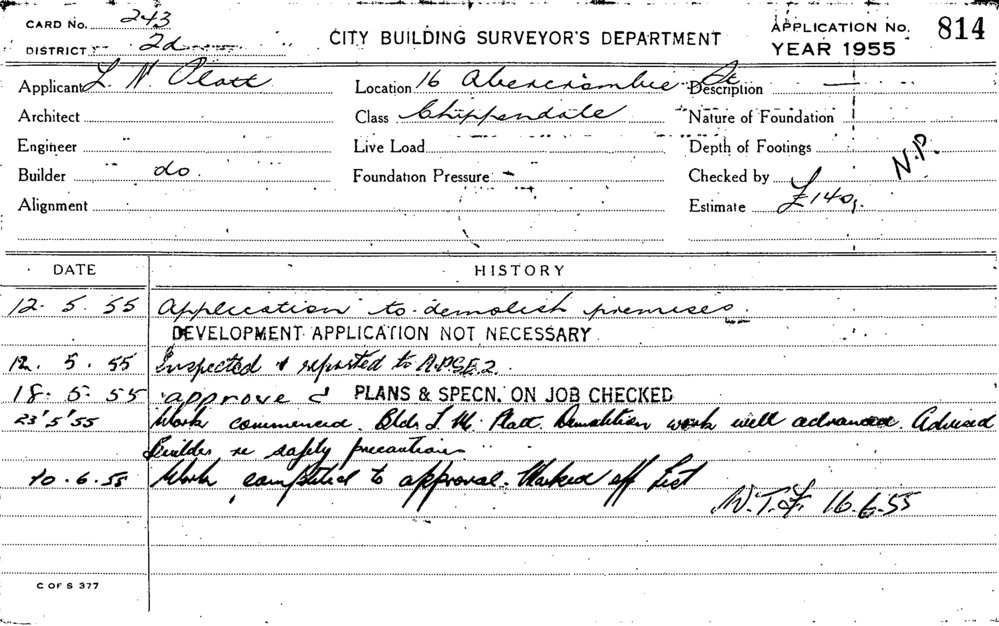 CARD No. 243
DISTRICT 2d
CITY BUILDING SURVEYOR'S DEPARTMENT
APPLICATION No. 814
YEAR 1955
Applicant L. N. Platt
Location 16 Abercrombie St
Description —
Architect
Class Chippendale
Nature of Foundation
Engineer
Live Load
Depth of Footings
Builder do.
Foundation Pressure
Checked by N.P.
Alignment
Estimate £140
DATE HISTORY
12. 5. 55 Application to demolish premises.
DEVELOPMENT APPLICATION NOT NECESSARY
12. 5. 55 Inspected & reported to
18. 5. 55 approved PLANS & SPECN. ON JOB CHECKED
23 5 55 Work commenced. Bldr. Platt. Demolition work well advanced. Advised
Builder re safety precautions
10. 6. 55 Work completed to approval. Marked off List
16.6.55
C OF S 377